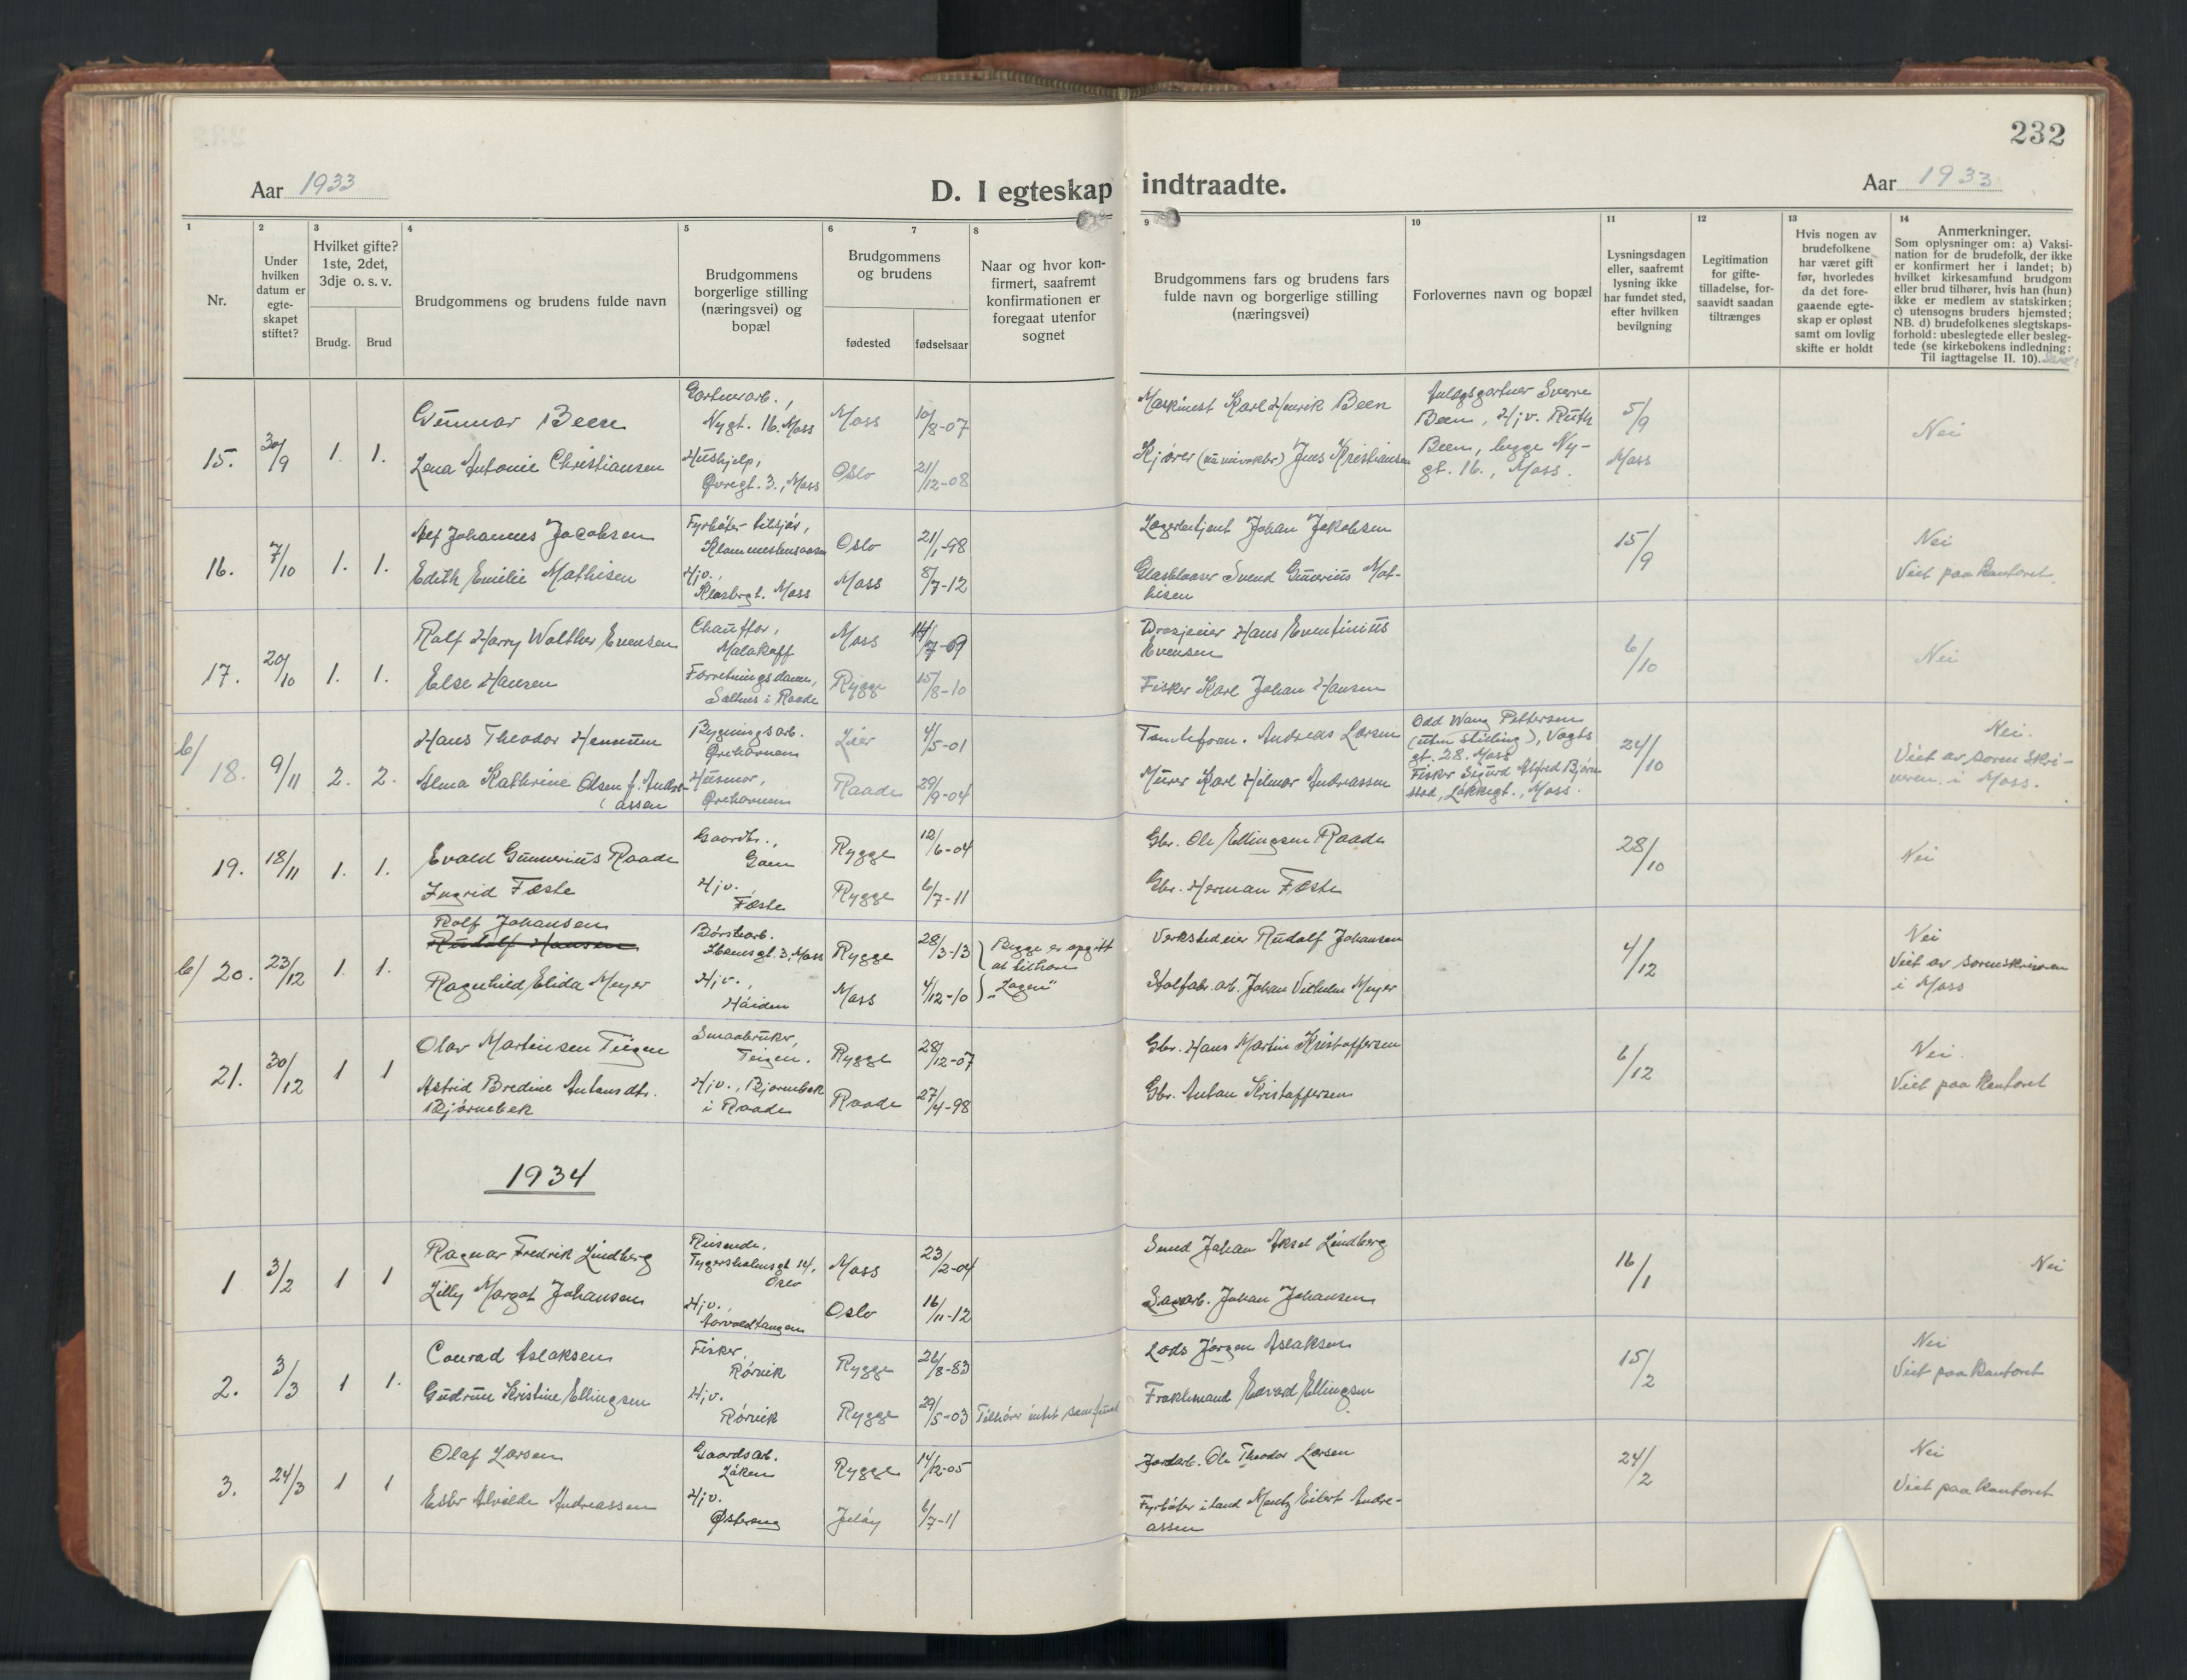 232
Aar 1933
D. I egteskap indtraadte.
Aar 1933
1
2
3
4
5
6
7
8
9
10
11
12
13
14
Nr.
Under
hvilken
datum er
egte-
skapet
stiftet?
Hvilket gifte?
1ste, 2det,
3dje o. s. v.
Brudg.
Brud
Brudgommens og brudens fulde navn
Brudgommens
borgerlige stilling
(næringsvei) og
bopæl
Brudgommens
og brudens
fødested
fødselsaar
Naar og hvor kon-
firmert, saafremt
konfirmationen er
foregaat utenfor
sognet
Brudgommens fars og brudens fars
fulde navn og borgerlige stilling
(næringsvei)
Forlovernes navn og bopæl
Lysningsdagen
eller, saafremt
lysning ikke
har fundet sted,
efter hvilken
bevilgning
Legitimation
for gifte-
tilladelse, for-
saavidt saadan
tiltrænges
Hvis nogen av
brudefolkene
har været gift
før, hvorledes
da det fore-
gaaende egte-
skap er opløst
samt om lovlig
skifte er holdt
Anmerkninger.
Som oplysninger om: a) Vaksi-
nation for de brudefolk, der ikke
er konfirmert her i landet; b)
hvilket kirkesamfund brudgom
eller brud tilhører, hvis han (hun)
ikke er medlem av statskirken;
c) utensogns bruders hjemsted;
NB. d) brudefolkenes slegtskaps-
forhold: ubeslegtede eller besleg-
tede (se kirkebokens indledning:
Til iagttagelse II. 10).
15.
30/9
1.
1.
Gunnar Been
Lena Antonie Christiansen
Gartnerarb.,
Nygt. 16. Moss
Hushjelp,
Øvregt. 3., Moss
Moss
Oslo
10/8-07
21/12-08
Maskinist Karl Henrik Been
Kjører Jens Kristiansen
Anlægsgartner Sverre
Been, Hjv. Ruth
Been, begge Ny-
gt. 16., Moss.
5/9
Moss
Nei
16.
7/10
1.
1.
Alf Johannes Jacobsen
Edith Emilie Mathisen
Fyrbøter tilsjøs,
Hjv.,
Moss
Oslo
Moss
21/1-98
8/7-12
Lagerbetjent Johan Jakobsen
Glasblaaser Svend Gunerius Mat-
hisen
15/9
Nei
Viet paa kontoret.
17.
20/10
1.
1.
Rolf Harry Walther Evensen
Else Hansen
Chauffør,
Malakoff
Forretningsdame,
Saltnes i Raade
Moss
Rygge
14/7-09
15/8-10
Drosjeeier Hans Eventinius
Evensen
Fisker Karl Johan Hansen
6/10
Nei
b/ 18.
9/11
2.
2.
Hans Theodor Hennum
Alma Kathrine Olsen f. Andre-
assen
Bygningsarb.
Ørehavnen
Husmor,
Ørehavnen
Lier
Raade
4/5-01
29/9-04
Tomteform. Andreas Larsen
Murer Karl Hilmar Andreassen
Odd Wang Pettersen
(uten stilling), Vogts
gt. 28. Moss
Fisker Sigurd Alfred Bjørn-
stad, Løkkegt., Moss.
24/10
Nei.
Viet av sorenskri-
veren i Moss.
19.
18/11
1.
1.
Evald Gunnerius Raade
Ingrid Fæste
Gaardbr.,
Gaen
Hjv.
Fæste
Rygge
Rygge
12/6-04
6/7-11
Gbr. Ole Ellingsen Raade
Gbr. Herman Fæste
28/10
Nei
b/ 20.
23/12
1.
1.
Rolf Johansen
Rudolf Hansen
Ragnhild Elida Meyer
Børstearb.
Ibsensgt. 3. Moss
Hjv.,
Høiden
Rygge
Moss
28/3-13
4/12-10
Begge er opgitt
at tilhøre
"Logen"
Verkstedeier Rudolf Johansen
Stolfabr. arb. Johan Vilhelm Meyer
4/12
Nei
Viet av sorenskriveren
i Moss
21.
30/12
1
1
Olav Martinsen Teigen
Astrid Bredine Antonsdtr.
Bjørnebek
Smaabruker,
Teigen.
Hjv., Bjørnebek
i Raade
Rygge
Raade
28/12-07
27/4-98
Gbr. Hans Martin Kristoffersen
Gbr. Anton Kristoffersen
6/12
Nei.
Viet paa kontoret
1934
1
3/2
1
1
Ragnar Fredrik Lindberg
Lilly Margot Johansen
Reisende.
14,
Oslo
Hjv.,
Aarvoldtangen
Moss
Oslo
23/2-04
16/11-12
Smed Johan Aksel Lindberg
Sagarb. Johan Johansen
16/1
Nei
2.
3/3
1
1.
Conrad Aslaksen
Gudrun Kristine Ellingsen
Fisker,
Rørvik
Hjv.
Rørvik
Rygge
Rygge
26/8-83
29/5-03
Tilhører intet samfund
Lods Jørgen Aslaksen
Fraktemand Edvard Ellingsen
15/2
Nei
Viet paa kontoret
3.
24/3
1
1
Olaf Larsen
Ester Alvilde Andreassen
Gaardsarb.
Løken
Hjv.
Østereng
Rygge
Jeløy
14/12-05
6/7-11
Jordarb. Ole Theodor Larsen
Fyrbøter i land Mentz Eilert Andre-
assen
24/2
Nei
Viet paa kontoret